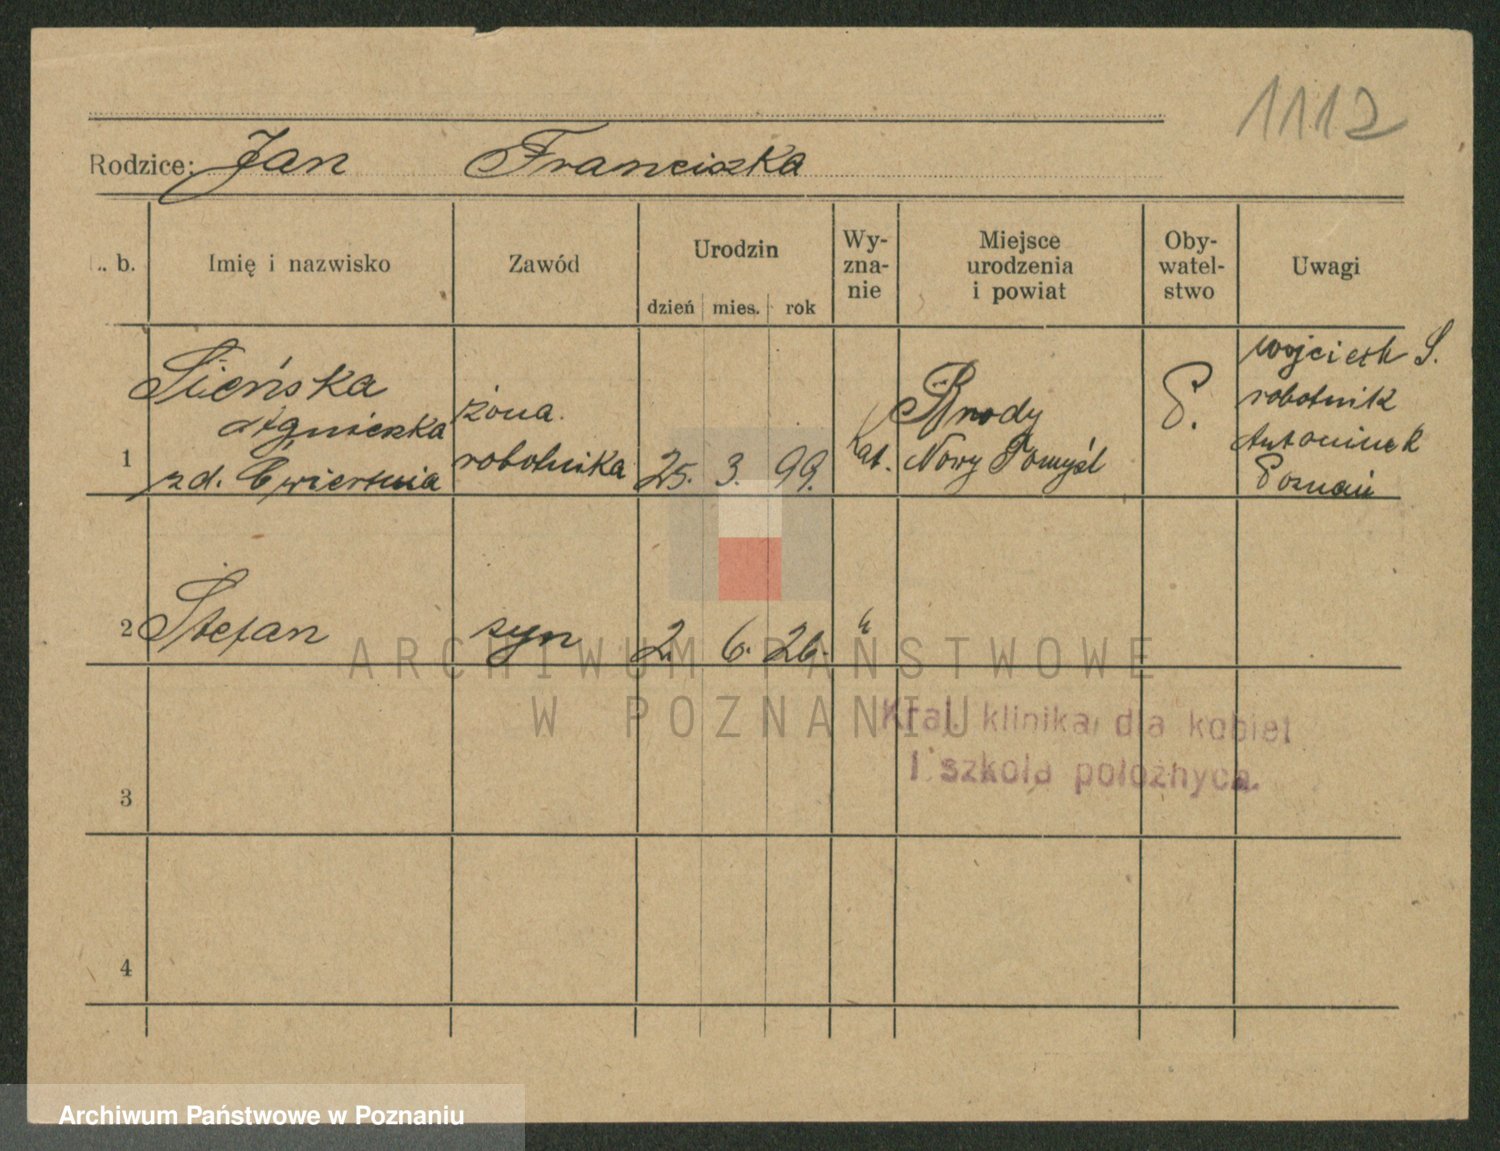 1112
Rodzice: Jan Franciszka
L. b.
Imię i nazwisko
Zawód
Urodzin
dzień mies. rok
Wy-
zna-
nie
Miejsce
urodzenia
i powiat
Oby-
watel-
stwo
Uwagi
1
Sieńska
Agnieszka
zd. Ćwiertnia
żona
robotnika
25. 3. 99.
Kat.
Brody
Nowy Tomyśl
P.
Wojciech S.
robotnik
Antoninek
Poznań
2 Stefan syn 2. 6. 26. "
Kraj. klinika dla kobiet
i szkoła położnych.
3
4
ARCHIWUM PAŃSTWOWE
W POZNANIU
Archiwum Państwowe w Poznaniu